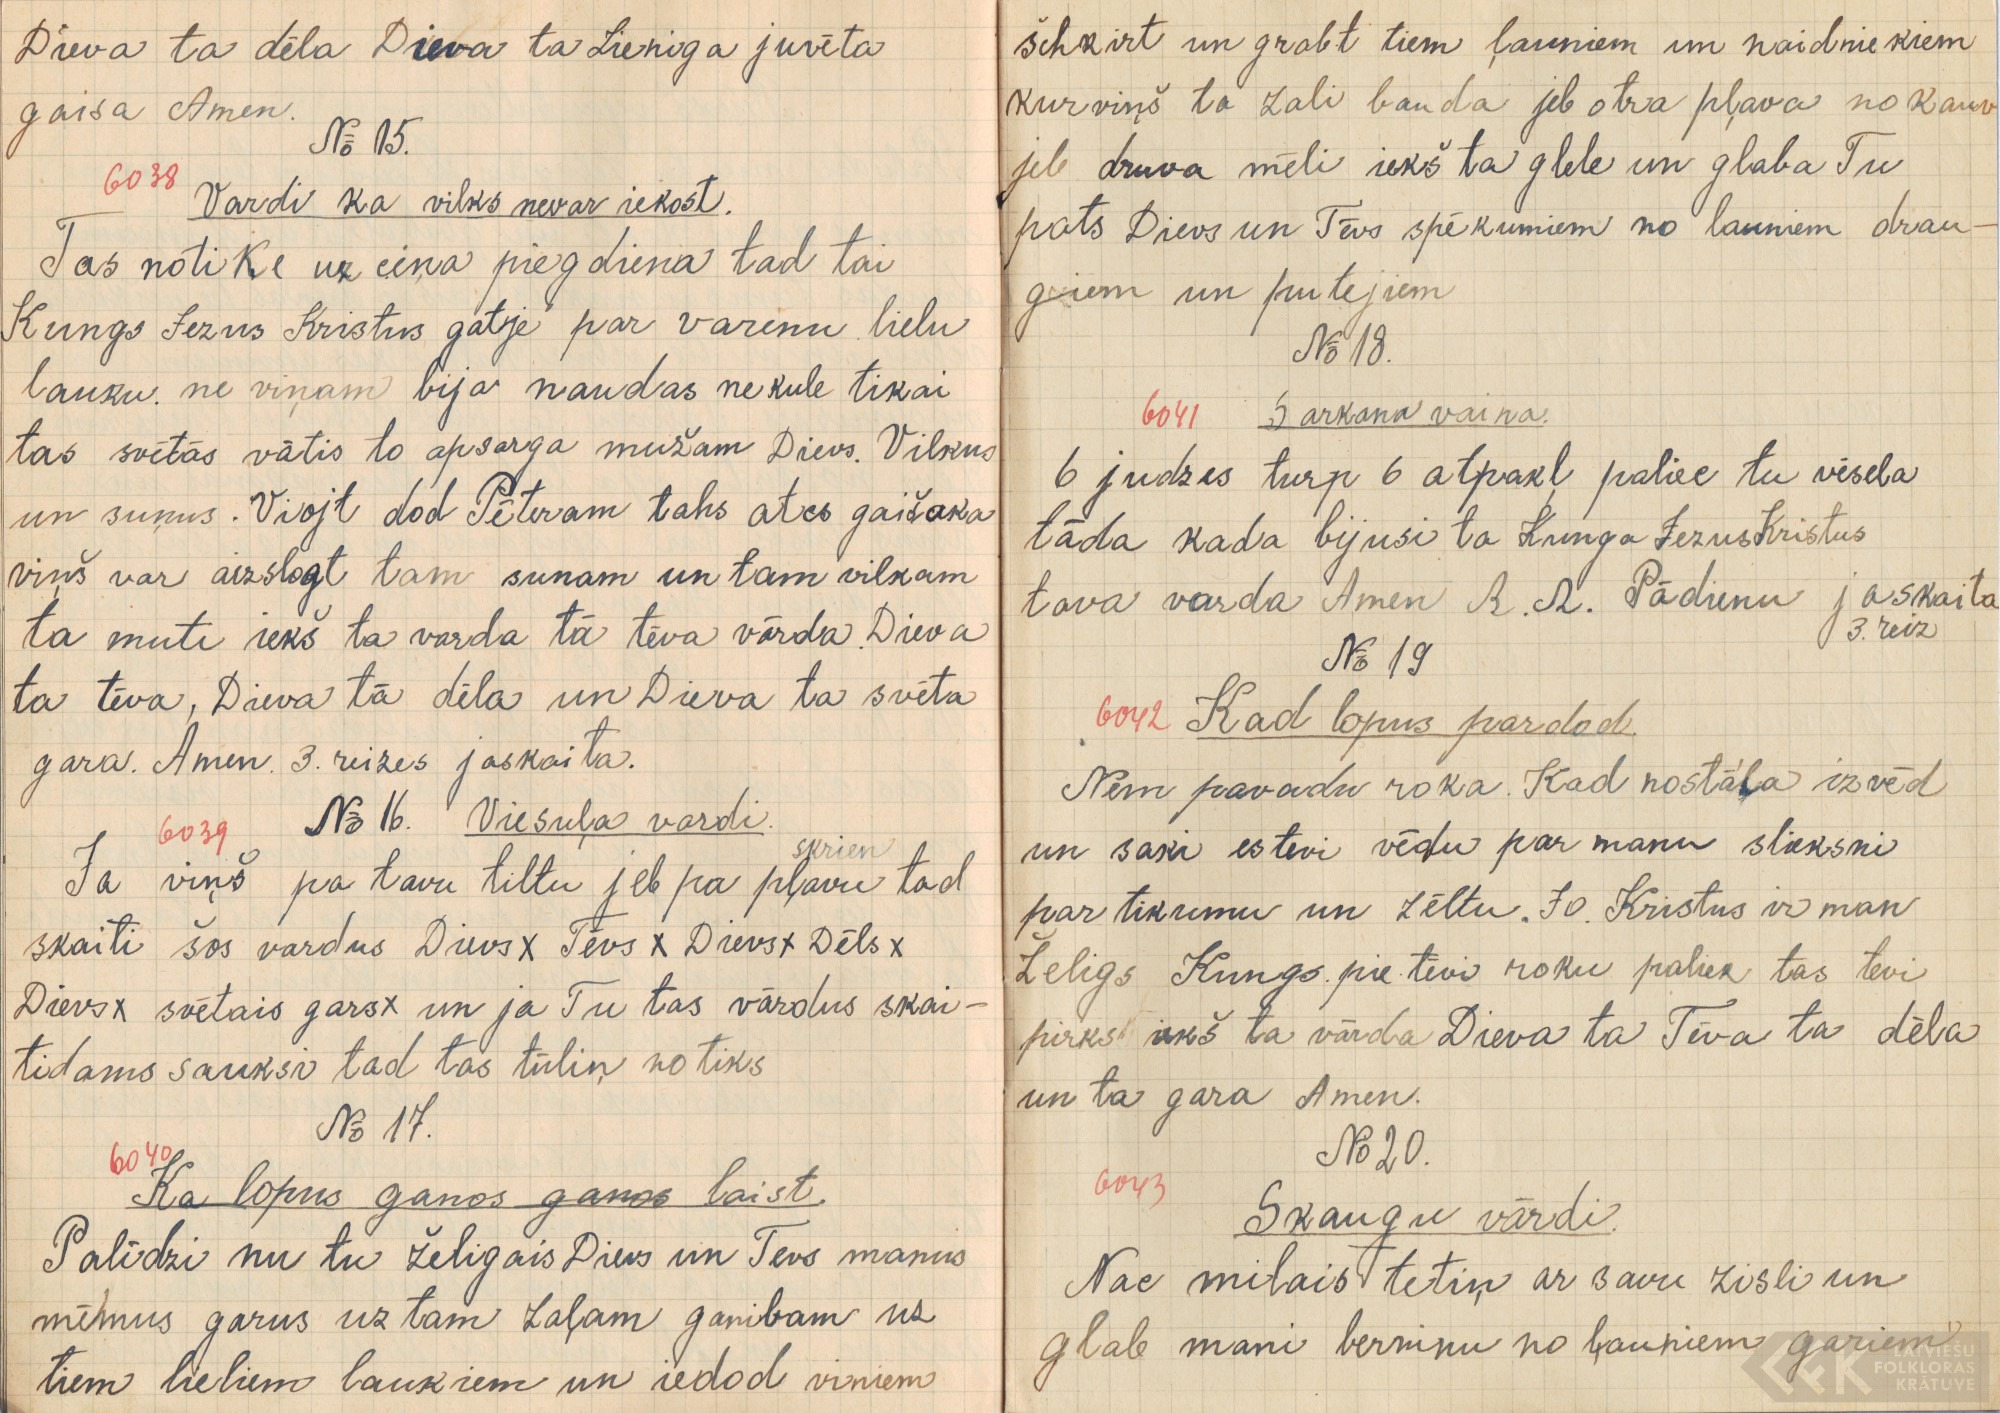 Dieva ta dēla Dieva ta Lieniga juvēta
gaisa Amen.
№ 15.
6038
Vardi ka vilks nevar iekost.
Tas nōtike uz eiņa piegdiena tad tai
Kungs Jezus Kristus gatje par varenu lielu
lauku. ne viņam bija naudas ne kule tikai
tas svētās vātis to apsarga mužam Dievs. Vilkus
un suņus. Viojt dod Pēteram tahs ates gaišaka
viņš var aizslogt tam sunam un tam vilkam
ta muti iekš ta varda tā tēva vārda. Dieva
ta tēva, Dieva tā dēla un Dieva ta svēta
gara. Amen. 3. reizes jaskaita.
6039 № 16. Viesuļa vardi.
skrien
Ja viņš pa tavu tiltu jeb pa pļavu tad
skaiti šos vardus Dievs x Tēvs x Dievs x Dēls x
Dievs x svētais gars x un ja Tu tas vārdus skai-
tidams sauksi tad tas tūliņ notiks
№ 17.
6040
Ka lopus ganos ganos laist.
Palīdzi nu tu želigais Dievs un Tevs manus
mēhnus garus uz tam zaļam ganibam uz
tiem lieliem laukiem un iedod viniem
šchkirt un grabt tiem ļauniem un naidniekiem
kur viņš ta zali bauda jeb otra pļava no kauv
jeb druva mēli iekš ta glele un glaba Tu
pats Dievs un Tēvs spēkumiem no launiem drau-
giem un putejiem
№ 18.
6041 Sarkana vaina.
6 judzes turp 6 atpakļ paliec tu vēsela
tāda kada bijusi ta Kunga Jezus Kristus
tava varda Amen R. R. Pādienu jaskaita
3. reiz
№ 19
6042 Kad lopus pardod.
Nem pavadu roka. Kad nostāļa izvēd
un saki es tevi vēdu par manu slieksni
par tikumu un zēltu. Jo. Kristus ir man
Želigs Kungs. pie tēvi roku paliek tas tevi
pirks iekš ta vārda Dieva ta Tēva ta dēla
un ta gara Amen.
№ 20.
6043
Skaugu vārdi.
Nac milais tetiņ ar savu zisli un
glab mani berninu no ļauniem gariem
LATVIEŠU
FOLKLORAS
KRĀTUVE